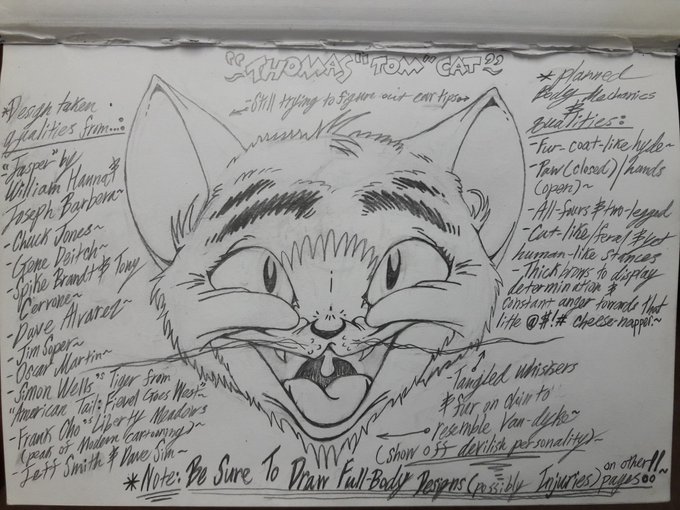 "THOMAS "TOM" CAT"
*Design taken
qualities from...:
-"Jasper" by
William Hanna &
Joseph Barbera~
-Chuck Jones~
-Gene Deitch~
-Spike Brandt & Tony
Cervone~
-Dave Alvarez~
-Jim Soper~
-Oscar Martin~
-Simon Wells' "Tiger from
"American Tail: Fievel Goes West"~
-Frank Cho "Liberty Meadows
(peak of Modern Cartooning)~
-Jeff Smith & Dave Sim~
-Still trying to figure out ear tips~
*Planned
Body Mechanics
&
Qualities:
-Fur-coat-like hyde~
-Paw (closed)/hands
(open)~
-All-fours & two-legged
-Cat-like/feral & yet
human-like stances
-Thick brows to display
determination &
constant anger towards that
litte @$!# cheese-napper~
-Tangled whiskers
& fur on chin to
resemble Van-dyke~
(show off devilish personality)~
*Note: Be Sure To Draw Full-Body Designs (possibly Injuries) on other pages!!